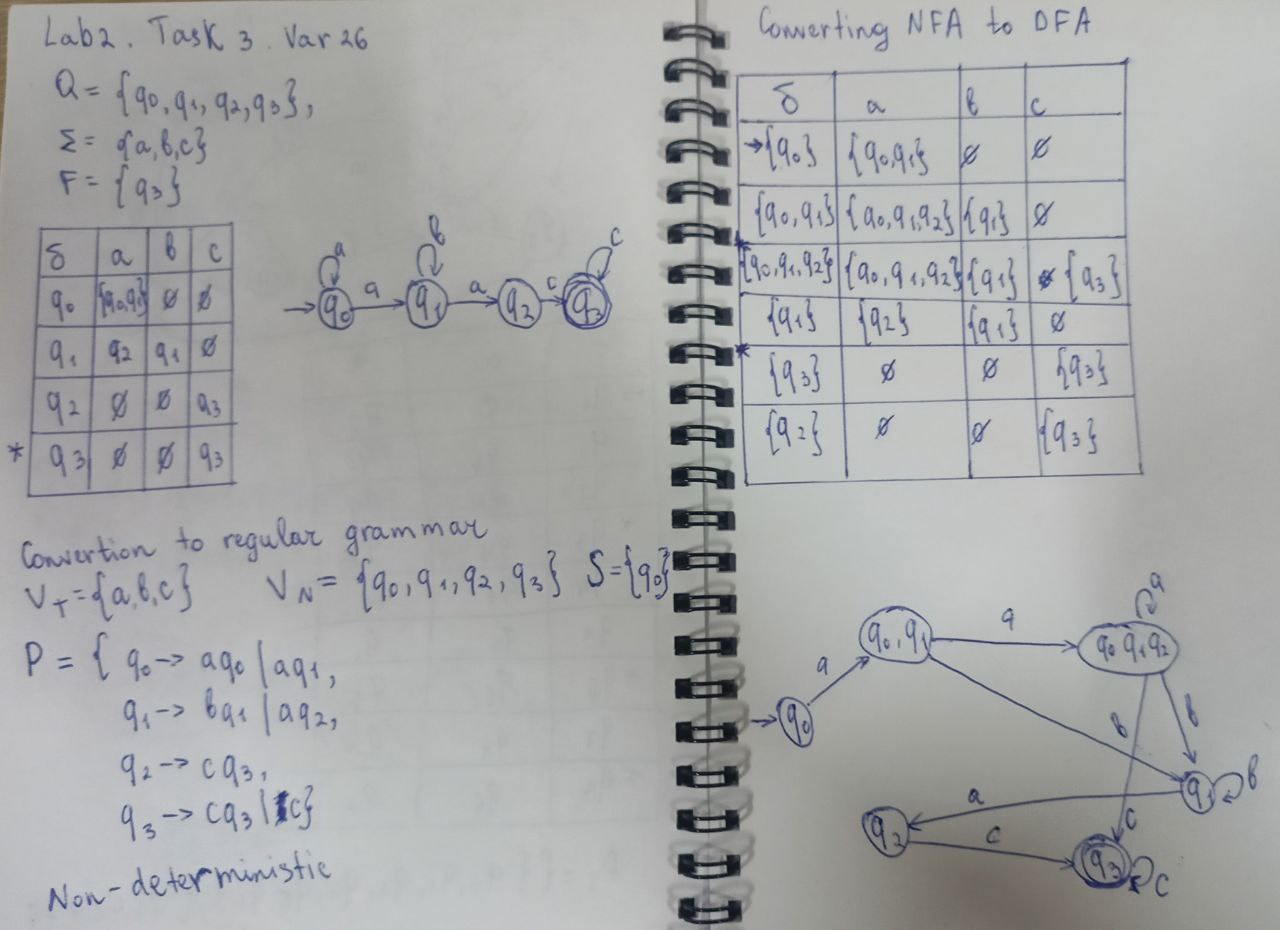 Lab2. Task 3. Var 26
Q = {q0, q1, q2, q3},
Σ = {a, b, c}
F = {q3}
δ a b c
q0 {q0,q1} ∅ ∅
q1 q2 q1 ∅
q2 ∅ ∅ q3
* q3 ∅ ∅ q3
a b c
q0 a q1 a q2 c q3
Convertion to regular grammar
VT = {a, b, c} VN = {q0, q1, q2, q3} S = {q0}
P = { q0 -> aq0 | aq1,
q1 -> bq1 | aq2,
q2 -> cq3,
q3 -> cq3 | c}
Non-deterministic
Converting NFA to DFA
δ a b c
→{q0} {q0,q1} ∅ ∅
{q0,q1} {q0,q1,q2} {q1} ∅
* {q0,q1,q2} {q0,q1,q2} {q1} {q3}
{q1} {q2} {q1} ∅
* {q3} ∅ ∅ {q3}
{q2} ∅ ∅ {q3}
a
q0, q1 a q0 q1 q2
a
q0 b b
a q1 b
q2 c c
q3 c